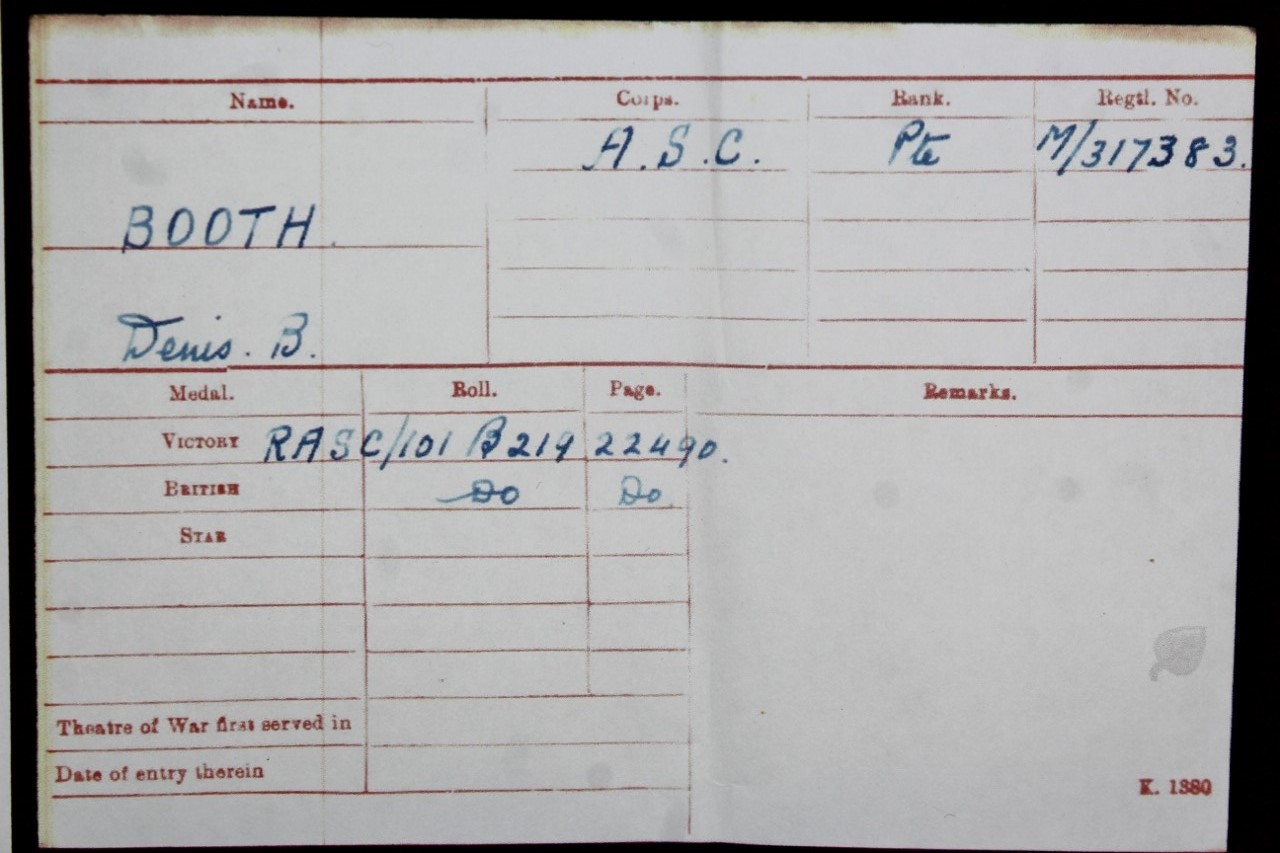 Name. Corps. Rank. Regtl. No.
A.S.C. Pte M/317383.
BOOTH.
Denis. B.
Medal. Roll. Page. Remarks.
VICTORY RASC/101 B219 22490.
BRITISH Do Do.
STAR
Theatre of War first served in
Date of entry therein
K. 1380